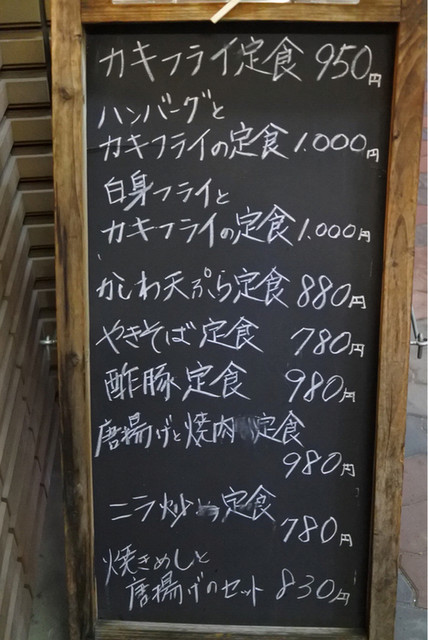 カキフライ定食 950円
ハンバーグと
カキフライの定食 1.000円
白身フライと
カキフライの定食 1.000円
かしわ天ぷら定食 880円
やきそば定食 780円
酢豚定食 980円
唐揚げと焼肉定食
980円
ニラ炒め定食
780円
焼きめしと
唐揚げのセット 830円